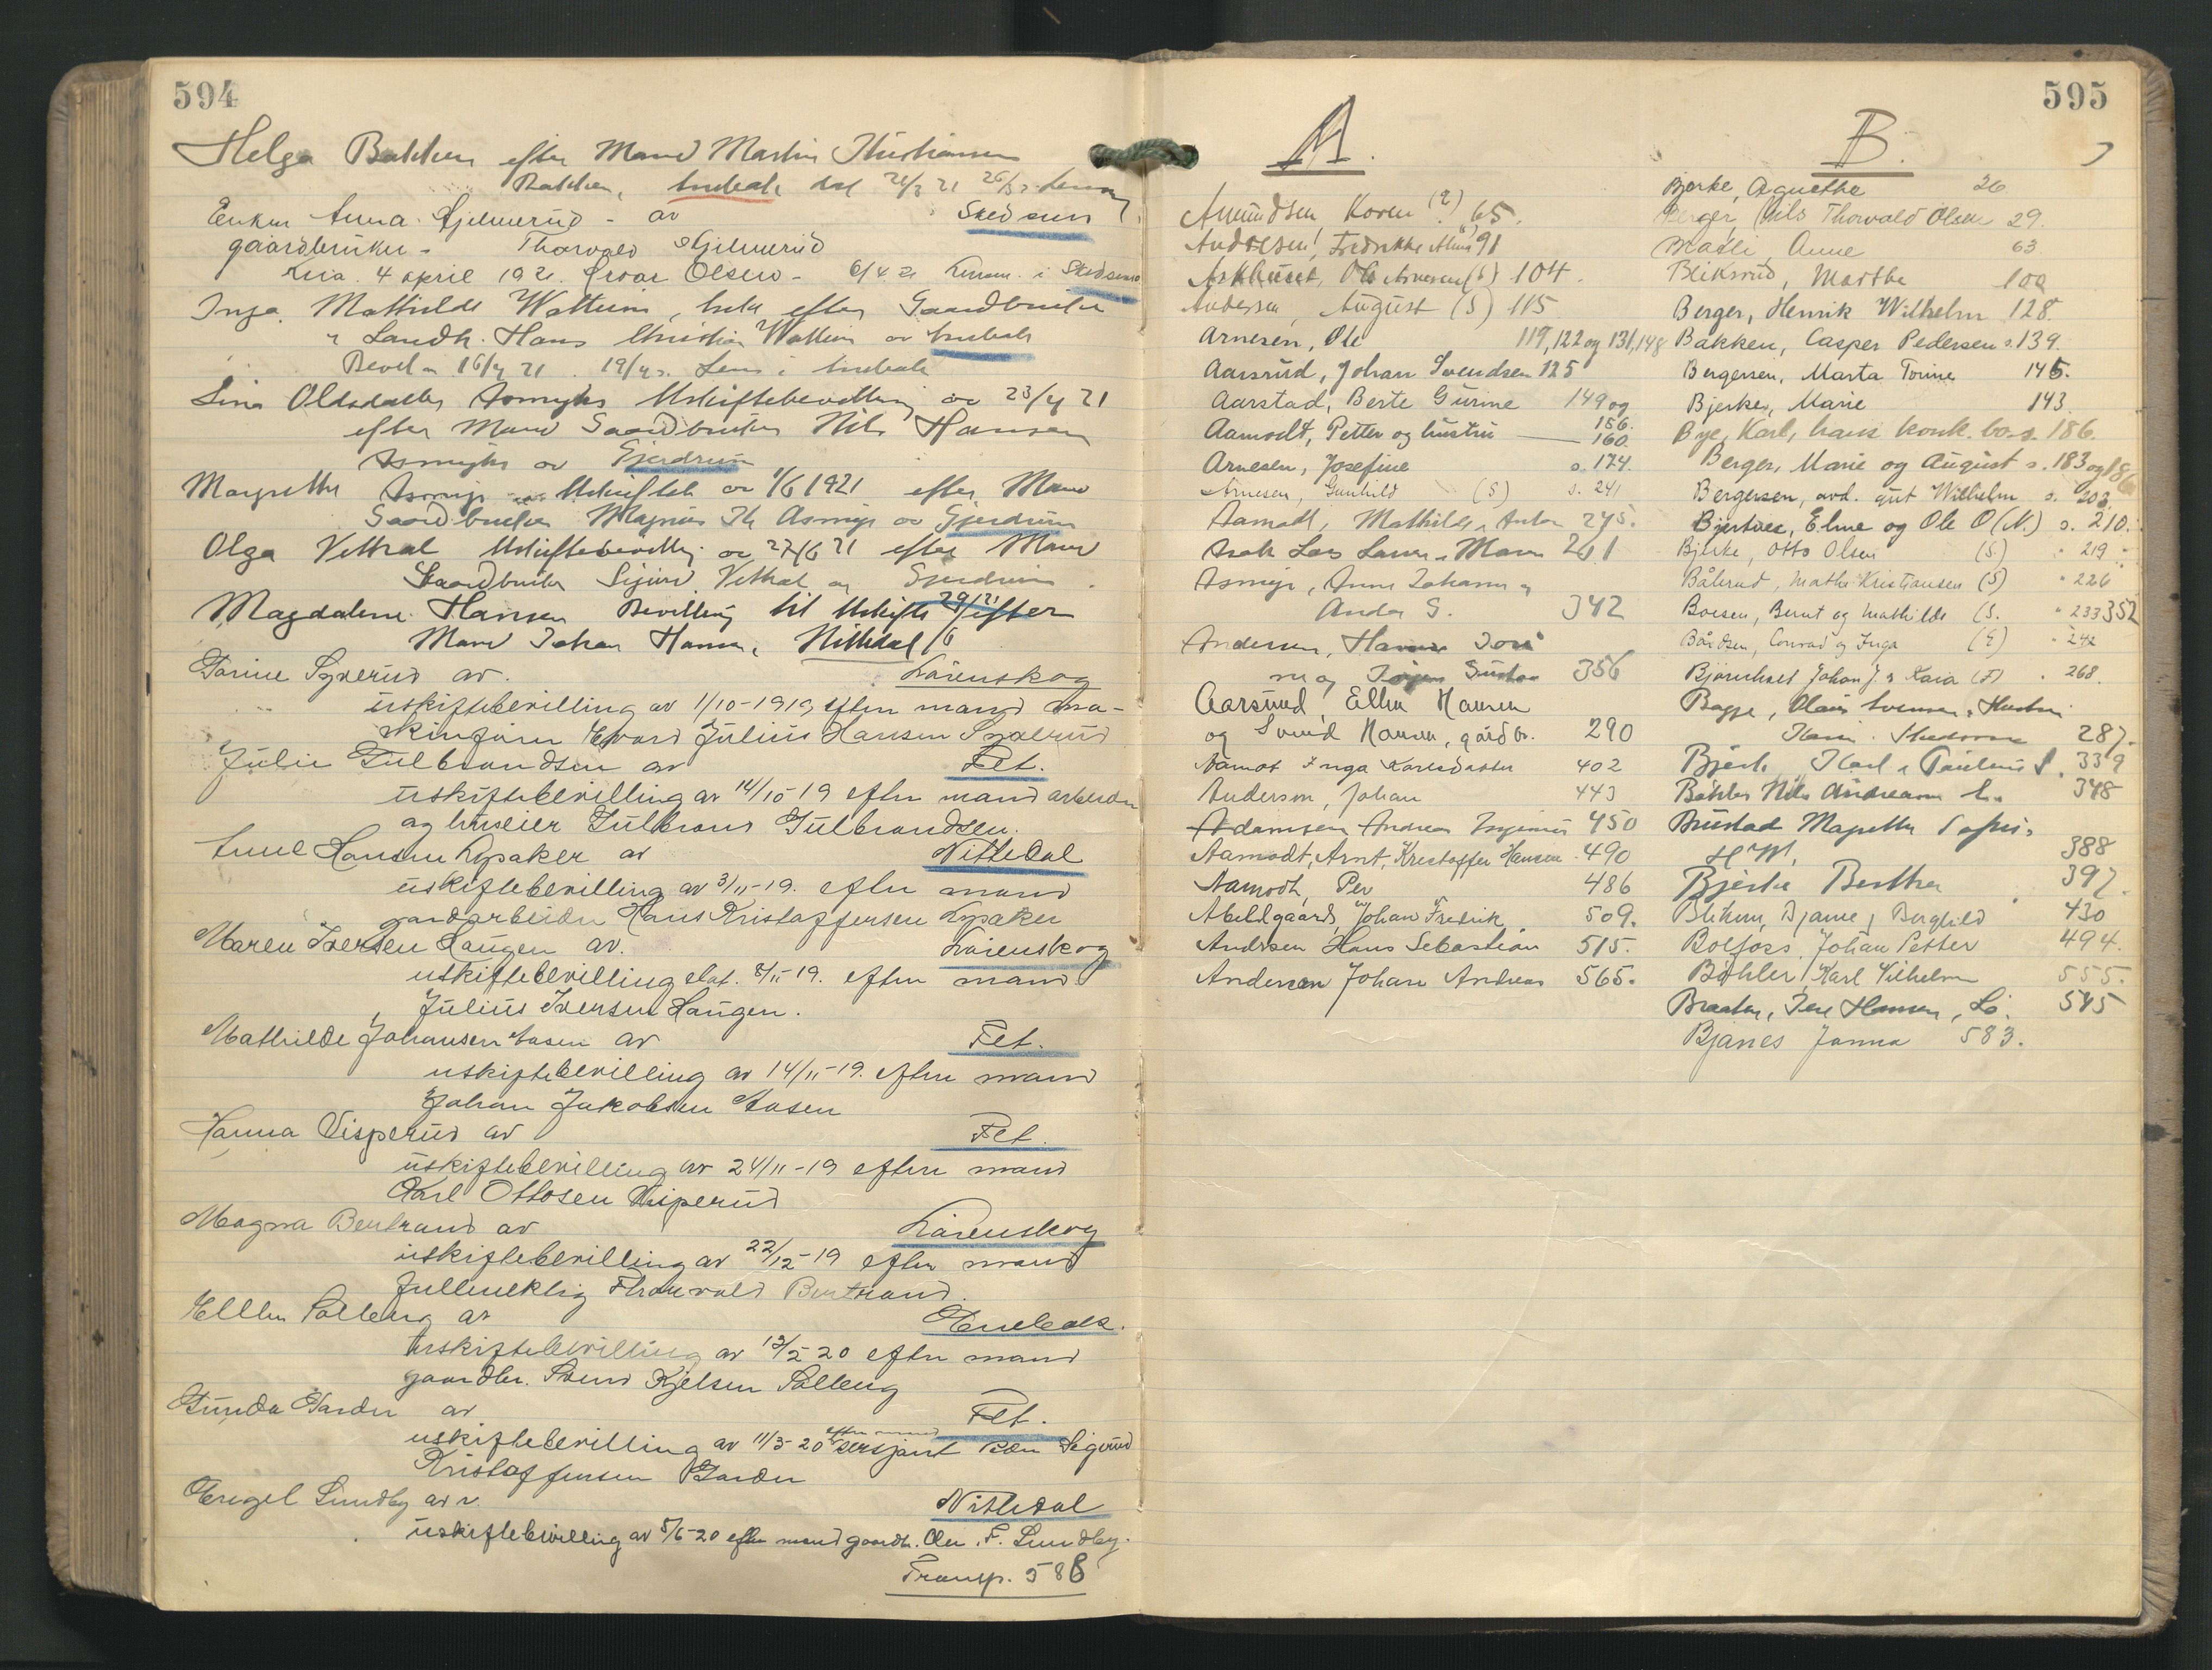 594
Helga Bakken efter Mand Martin Kristiansen
Bakken,
Enken Anna Hjelmerud - av Skedsmo
gaardbruker - Thorvald Hjelmerud
Kria. 4 april 1921. Olsen - 6/4 21 i Skedsmo
Inga Mathilde efter Gaardbruker
Landh. Hans Christian av Enebak
Bevil 16/4 21. 19/4 Lens. i Enebak
Lina Olsdatter Asmyhr Uskiftebevilling av 23/4 21
efter Mand Gaardbruker Nils Hansen
Asmyhr av Gjerdrum
Margrethe Asmyr Uskiftet av 1/6 1921 efter Mand
Gaardbruker Magnus Asmyr av Gjerdrum
Olga Vethal Uskiftebevilling av 27/6 21 efter Mand
Gaardbruker Sigurd Vethal av Gjerdrum.
Magdalene Hansen Bevilling til Uskifte 29/6 21 efter
Mand Johan Hansen, Nittedal
Torine Syverud av. Lørenskog
uskiftebevilling av 1/10-1919 efter mand ma-
Julius Hansen Syverud
Julie Gulbrandsen av Fet.
uskiftebevilling av 14/10-19 efter mand arbeider
og huseier Gulbrand Gulbrandsen.
Hansen Kypaker av Nittedal
uskiftebevilling av 3/11-19. efter mand
gaardarbeider Hans Kristoffersen Kypaker
Maren Iversen Haugen av. Lørenskog
uskiftebevilling dat. 8/11-19. efter mand
Julius Iversen Haugen.
Mathilde Johansen Aasen av Fet.
uskiftebevilling av 14/11-19. efter mand
Johan Jakobsen Aasen
Hanna Visperud av Fet.
uskiftebevilling av 24/11-19 efter mand
Karl Ottosen Visperud
Magna Bentrand av Lørenskog
uskiftebevilling av 22/12-19 efter mand
fuldmektig Thorvald Bentrand.
Ellen Solberg av Enebak.
uskiftebevilling av 12/2 20 efter mand
gaardbr. Svend Kjelsen Solberg
Gunda Garder av Fet.
uskiftebevilling av 11/3-20 efter mand sersjant Peder Sigurd
Kristoffersen Garder
Engel Sundby av Nittedal
uskiftebevilling av 5/6-20 efter mand gaardbr. Ole F. Sundby.
Transp. 588
595
A.
Amundsen, Karen (?) 65.
Andersen, Fredrikke Alma 91
Askhuset, Ole Arnesen (S) 104.
Andersen, August (S) 115
Arnesen, Ole 119, 122 og 131, 148
Aarsrud, Johan Svendsen 125
Aarstad, Berte Gurine 149 og
156.
Aamodt, Petter og hustru 160.
Arnesen, Josefine s. 174.
Arnesen, Gunhild (S) s. 241
Aamodt, Mathilde, Anton 275.
Asak Lars Larsen, Maren 261
Asmyr, Anne Johanne og
Anders G. 342
Andersen, Hanna
og Jørgen Gustav 356
Aarsrud, Ellen Hansen
og Svend Hansen, gårdbr. 290
Aamot Inga Karlsdatter 402
Anderson, Johan 443
Adamsen Andreas Ingemar 450
Aamodt, Arnt, Kristoffer Hansen 490
Aamodt, Per 486
Abildgaard, Johan Fredrik 509.
Andersen Hans Sebastian 515.
Andersen Johan Andreas 565.
B.
Bjerke, Agnethe 26
Berger, Nils Thorvald Olsen 29.
Braatli, Anne 63
Bliksrud, Marthe 100
Berger, Henrik Wilhelm 128.
Bakken, Casper Pedersen s. 139.
Bergersen, Marta Torine 145.
Bjerke, Marie 143.
Bye, Karl, hans konk. bo s. 186.
Berger, Marie og August s. 183 og 186
Bergersen, avd. gut Wilhelm s. 203.
Bjerkvee, Eline og Ole O (N.) s. 210.
Bjerke, Otto Olsen (S) " 219
Bålerud, Mathe Kristiansen (S) " 226
Boesen, Bernt og Mathilde (S. " 233 352
Bårdsen, Conrad og Inga (E) " 242
Bjørnholt Johan J. & Kaia (F) " 268.
Bagge, Olaus Svensen, Hustru
Skedsmo 287.
Bjerke Karl & Pauline S. 339
Bøhler Nils Andreasen L. 348
Brustad Magrethe
H. M. 388
Bjerke Berthea 397.
Blikum, Bjarne og Bergljod 430
Bolfoss, Johan Petter 494.
Bøhler, Karl Vilhelm 555.
Braaten, Hansen, Lø. 545
Bjanes Janna 583.